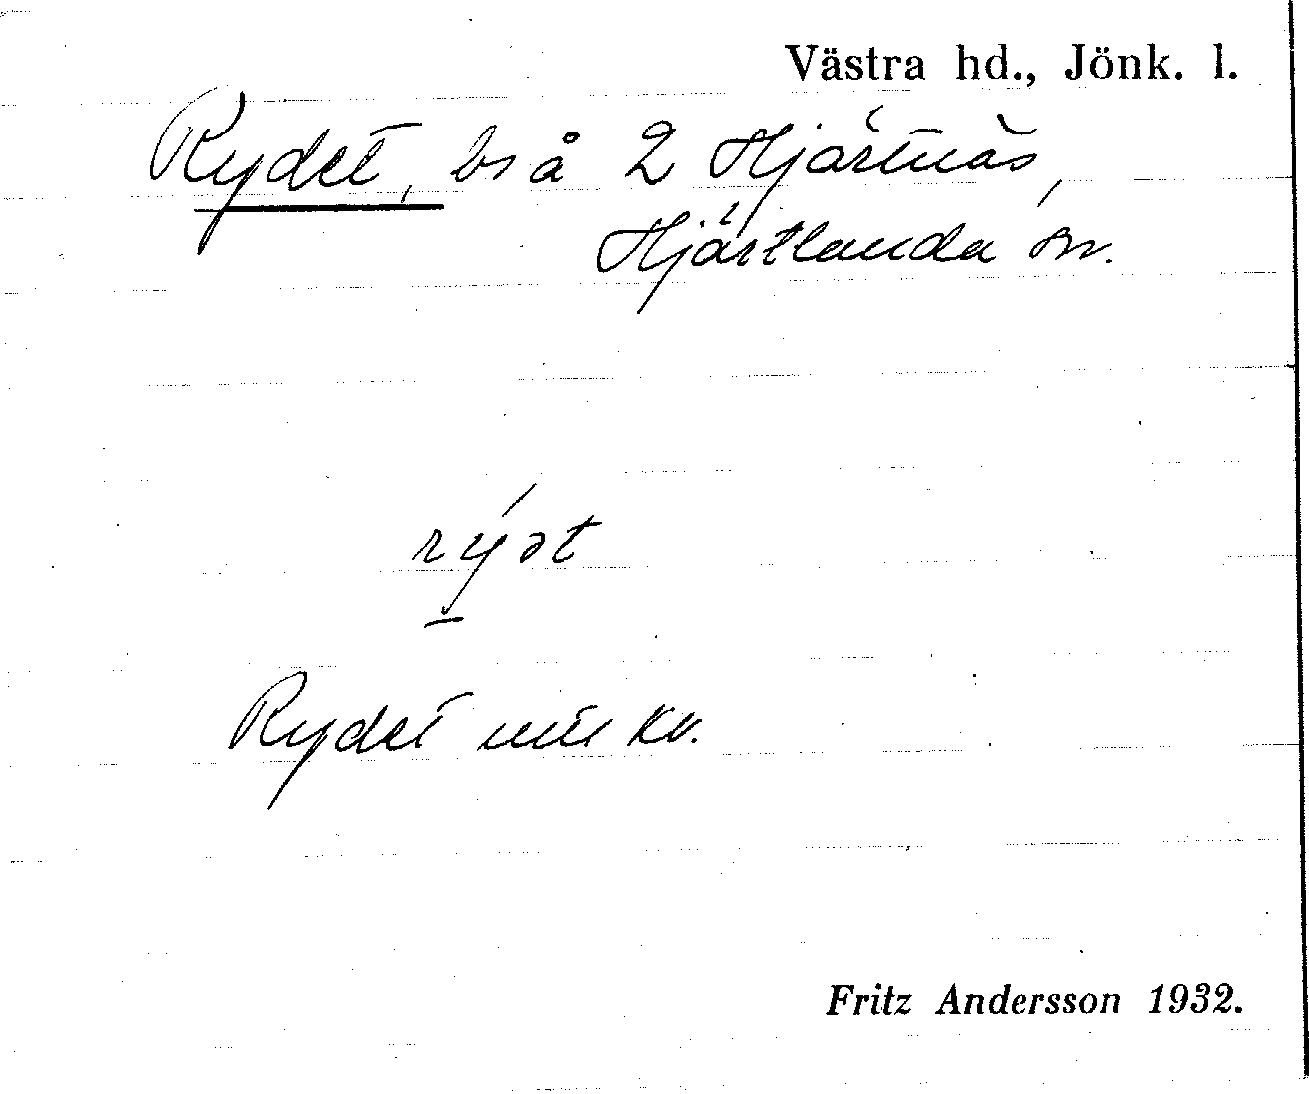 Västra hd., Jönk. l.
Rydet, bs å 2 Hjärtnäs,
Hjärtlanda sn.
rýət
Rydet mtt kv.
Fritz Andersson 1932.